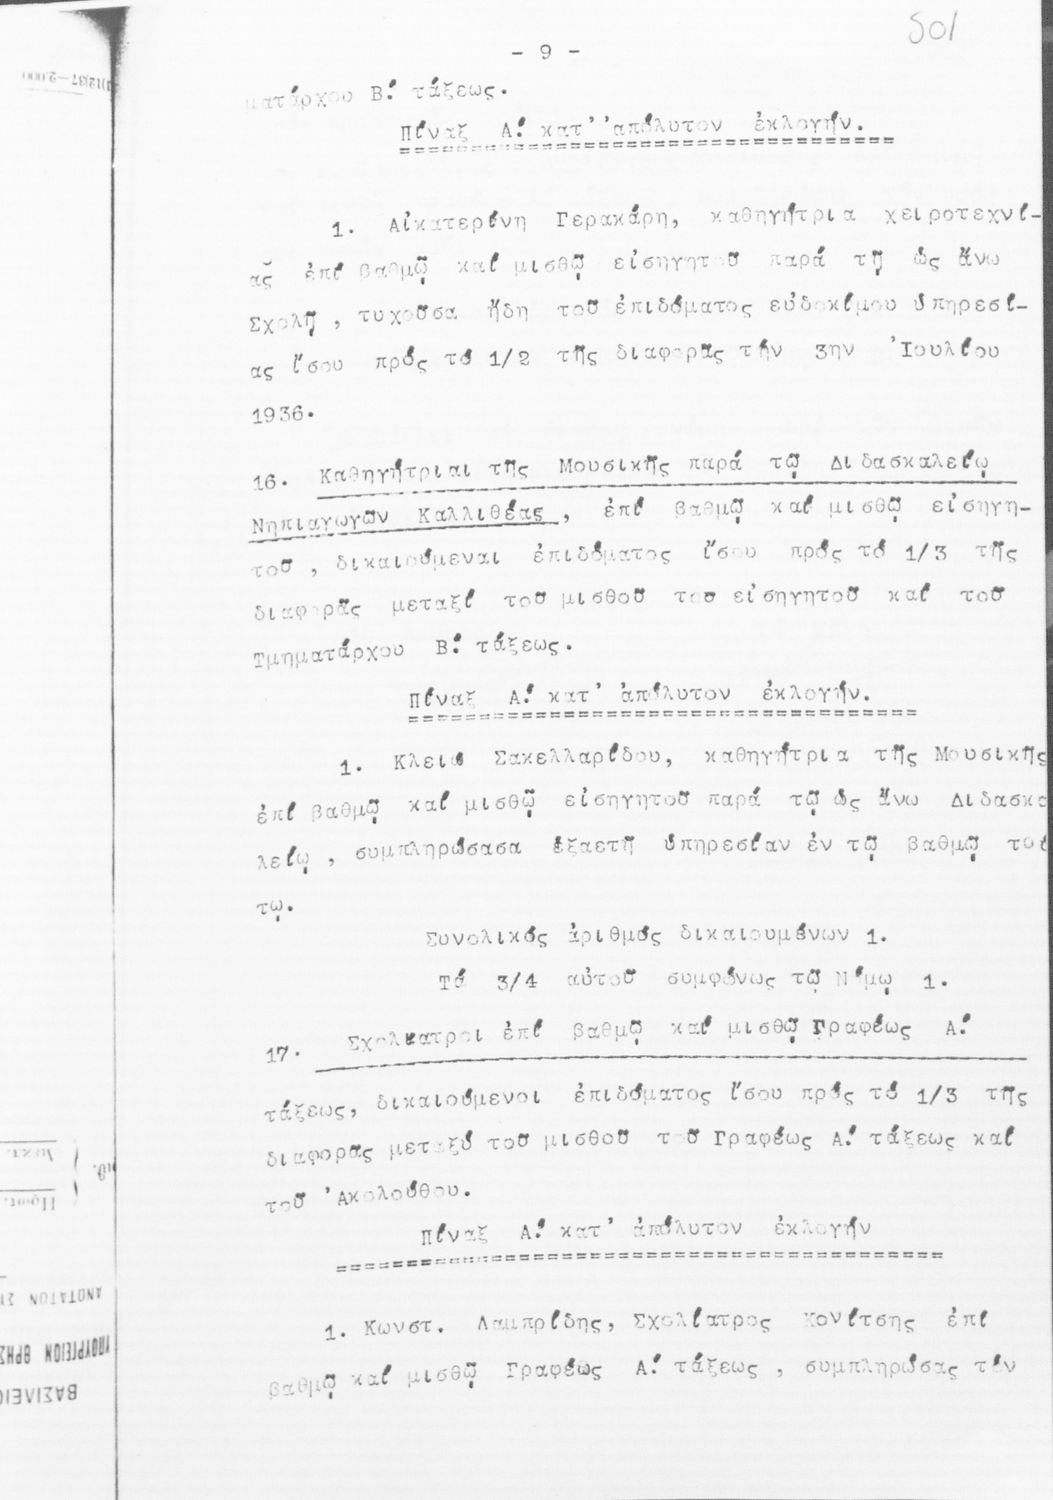 501
- 9 -
ματάρχου Β! τάξεως.
Πίναξ Α! κατ' 'απόλυτον ἐκλογήν.
1. Αἰκατερίνη Γερακάρη, καθηγήτρια χειροτεχνί-
ας ἐπί βαθμῷ καί μισθῷ εἰσηγητοῦ παρά τῇ ὡς ἄνω
Σχολῇ, τυχοῦσα ἤδη τοῦ ἐπιδόματος εὐδοκίμου ὑπηρεσί-
ας ἴσου πρός τό 1/2 τῆς διαφορᾶς τήν 3ην Ἰουλίου
1936.
16. Καθηγήτριαι τῆς Μουσικῆς παρά τῷ Διδασκαλείῳ
Νηπιαγωγῶν Καλλιθέας, ἐπί βαθμῷ καί μισθῷ εἰσηγη-
τοῦ, δικαιούμεναι ἐπιδόματος ἴσου πρός τό 1/3 τῆς
διαφορᾶς μεταξί τοῦ μισθοῦ τοῦ εἰσηγητοῦ καί τοῦ
Τμηματάρχου Β! τάξεως.
Πίναξ Α! κατ' ἀπόλυτον ἐκλογήν.
1. Κλειώ Σακελλαρίδου, καθηγήτρια τῆς Μουσικῆς
ἐπί βαθμῷ καί μισθῷ εἰσηγητοῦ παρά τῷ ὡς ἄνω Διδασκα
λείῳ, συμπληρώσασα ἑξαετῆ ὑπηρεσίαν ἐν τῷ βαθμῷ τού
τῳ.
Συνολικός ἀριθμός δικαιουμένων 1.
Τά 3/4 αὐτοῦ συμφώνως τῷ Νόμῳ 1.
17. Σχολίατροι ἐπί βαθμῷ καί μισθῷ Γραφέως Α!
τάξεως, δικαιούμενοι ἐπιδόματος ἴσου πρός τό 1/3 τῆς
διαφορᾶς μεταξύ τοῦ μισθοῦ τοῦ Γραφέως Α! τάξεως καί
τοῦ Ἀκολούθου.
Πίναξ Α! κατ' ἀπόλυτον ἐκλογήν
1. Κωνστ. Λαμπρίδης, Σχολίατρος Κονίτσης ἐπί
βαθμῷ καί μισθῷ Γραφέως Α! τάξεως, συμπληρώσας τήν